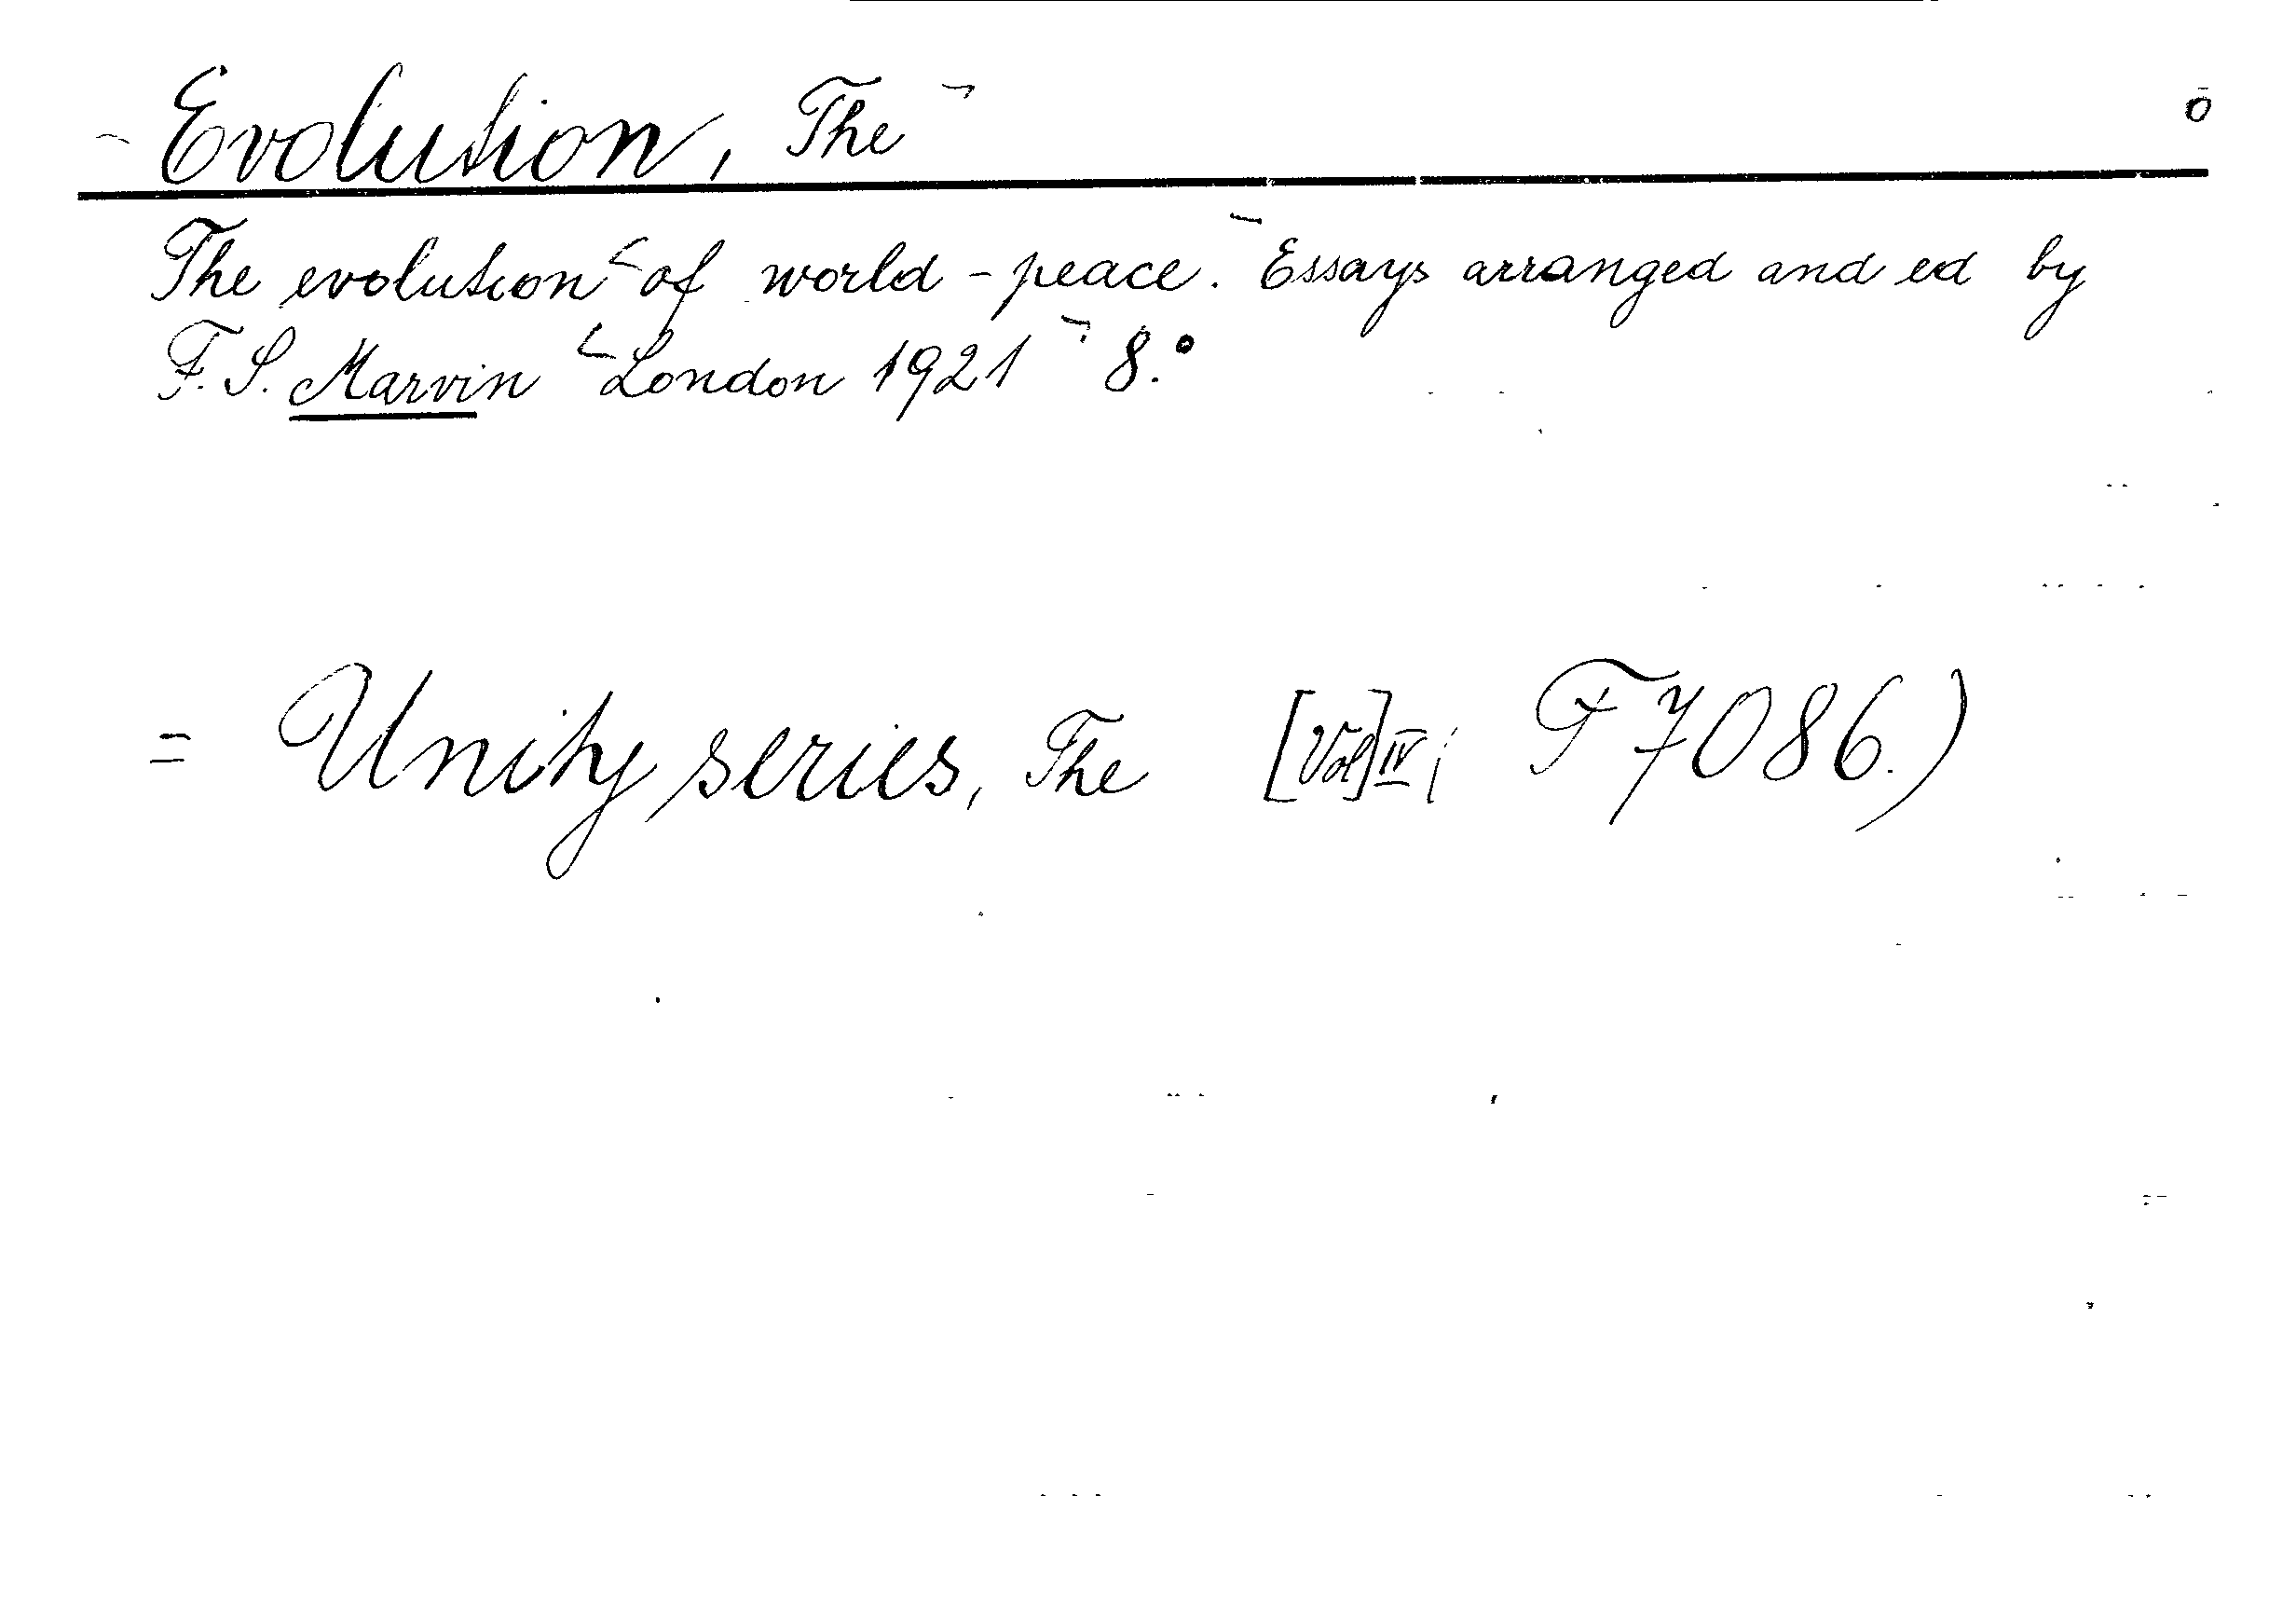 Evolution, The o
The evolution of world-peace. Essays arranged and ed by
F. S. Marvin London 1921 8.°
= Unity series, The [Vol] IV; F7086.)